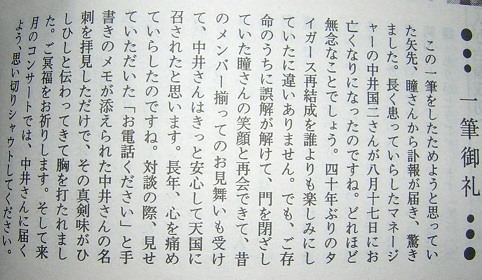 ●●● 一筆御礼 ●●●
この一筆をしたためようと思ってい
た矢先、瞳さんから訃報が届き、驚き
ました。長く患っていらしたマネージ
ャーの中井国二さんが八月十七日にお
亡くなりになったのですね。どれほど
無念なことでしょう。四十年ぶりのタ
イガース再結成を誰よりも楽しみにし
ていたに違いありません。でも、ご存
命のうちに誤解が解けて、門を閉ざし
ていた瞳さんの笑顔と再会できて、昔
のメンバー揃ってのお見舞いも受け
て、中井さんはきっと安心して天国に
召されたと思います。長年、心を痛め
ていらしたのですね。対談の際、見せ
ていただいた「お電話ください」と手
書きのメモが添えられた中井さんの名
刺を拝見しただけで、その真剣味がひ
しひしと伝わってきて胸を打たれまし
た。ご冥福をお祈りします。そして来
月のコンサートでは、中井さんに届く
よう、思い切りシャウトしてください。